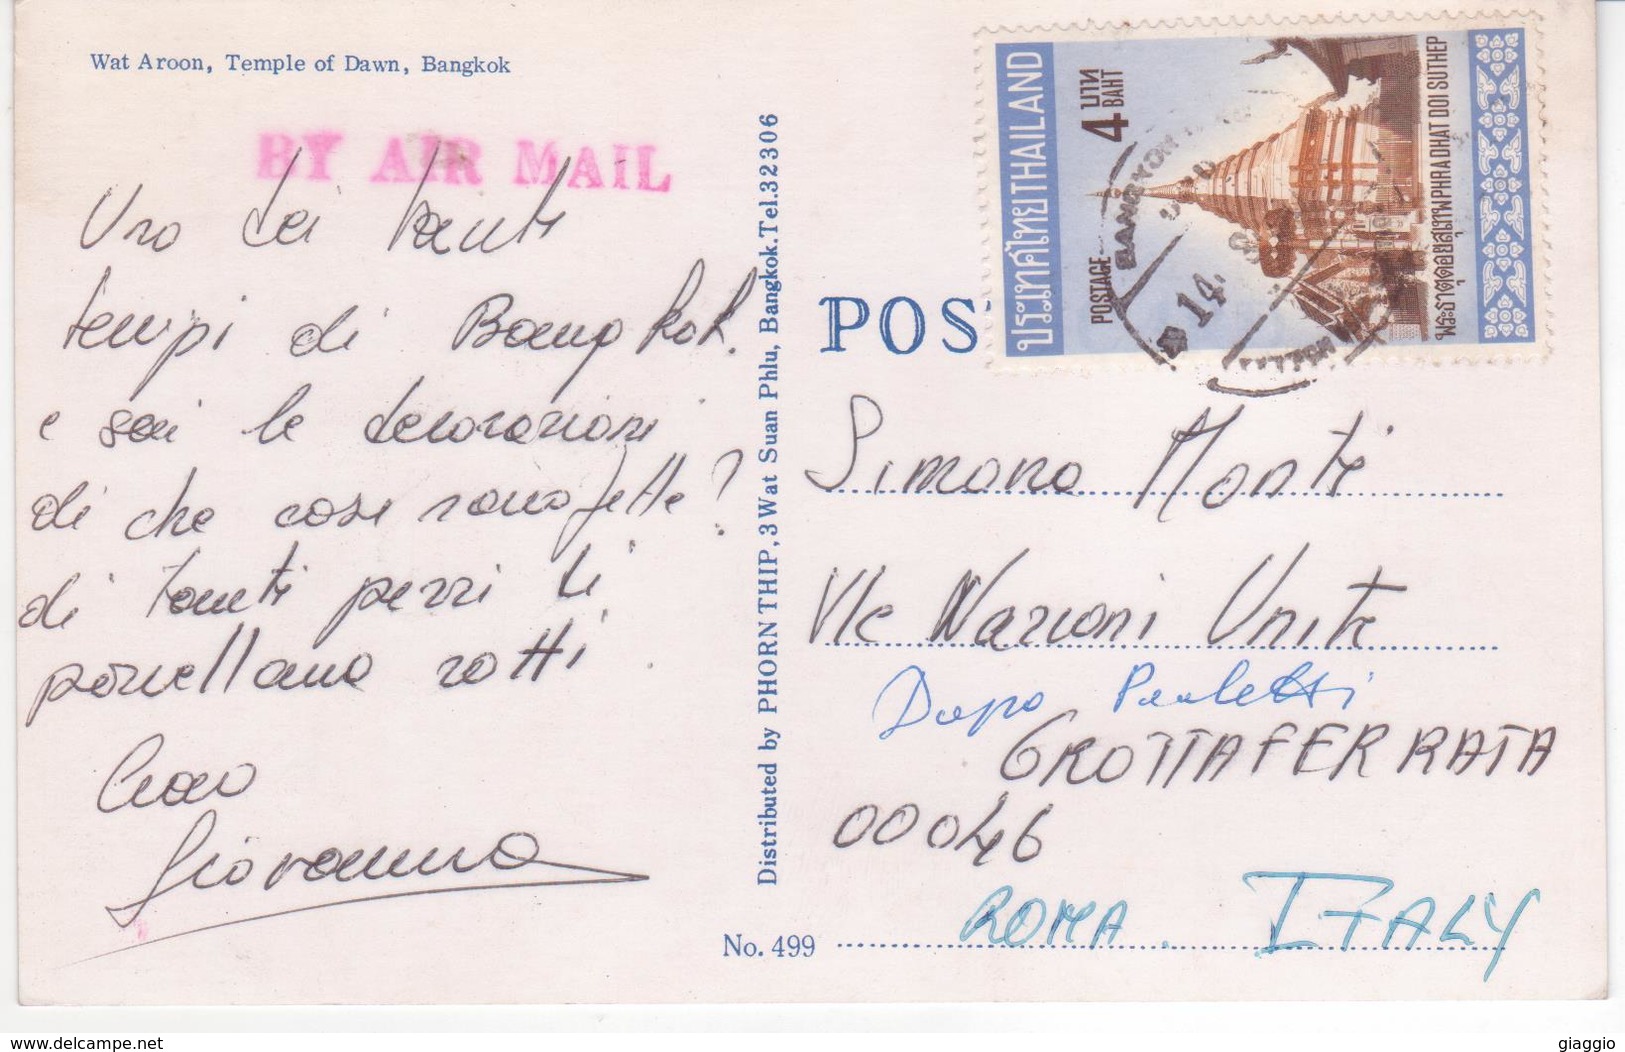 Wat Aroon, Temple of Dawn, Bangkok
BY AIR MAIL
Uno dei tanti
tempi di Bangkok.
e sai le decorazioni
di che cosa sono fatte?
di tanti pezzi di
porcellana rotti.
Ciao
Giovanna
Distributed by PHORN THIP, 3 Wat Suan Phlu, Bangkok. Tel. 32306
No. 499
POS
ประเทศไทย THAILAND
POSTAGE
4 บาท
BAHT
พระธาตุดอยสุเทพ PHRA DHAT DOI SUTHEP
14.
Simona Monti
Vle Nazioni Unite
Dopo Pauletti
GROTTAFERRATA
00046
ROMA. ITALY
delcampe.net
giaggio